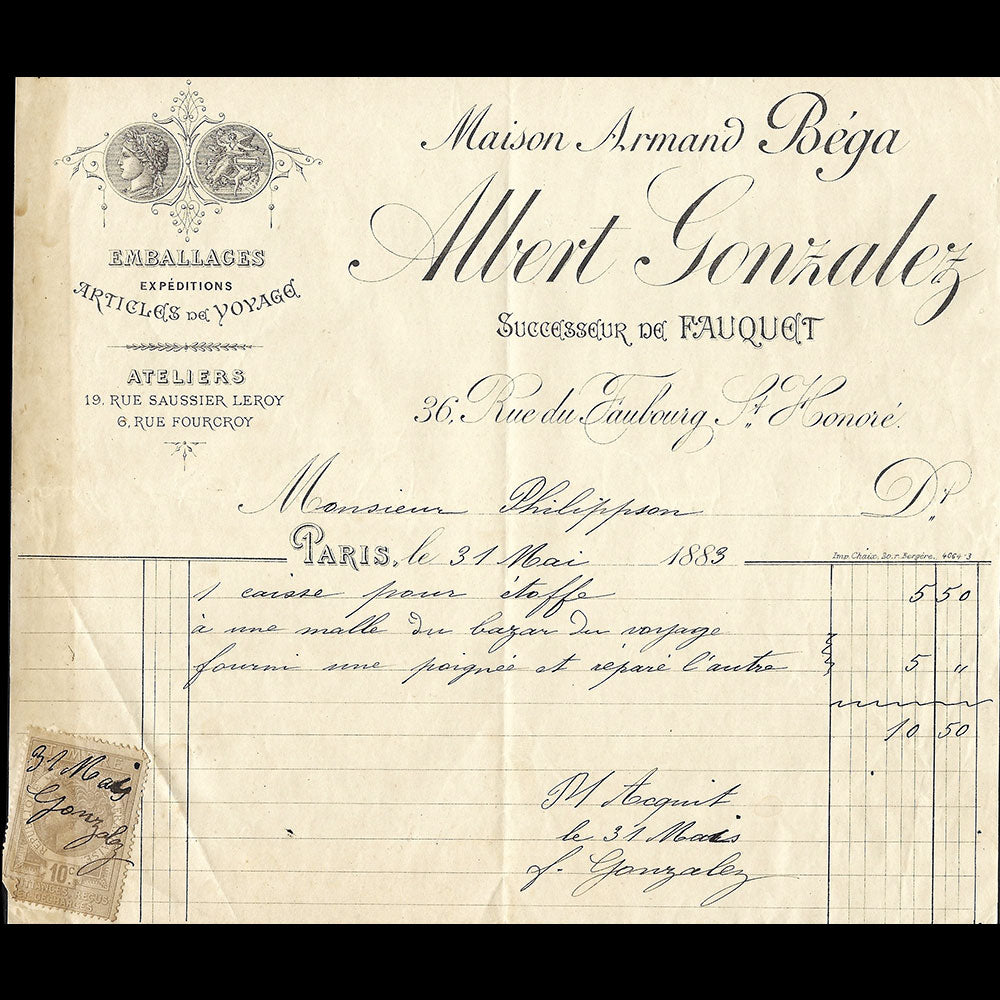 Maison Armand Béga
Albert Gonzalez
Successeur de FAUQUET
36, Rue du Faubourg St Honoré.
EMBALLAGES
EXPÉDITIONS
ARTICLES DE VOYAGE
ATELIERS
19, RUE SAUSSIER LEROY
6, RUE FOURCROY
Monsieur Philippson Dt
PARIS, le 31 Mai 1883
Imp. Chaix, 20, r. Bergère. 4064-3
1 caisse pour étoffe 5 50
à une malle du bazar du voyage
fourni une poignée et réparé l'autre 5 "
10 50
Pr Acquit
le 31 Mais
f. Gonzalez
31 Mais
Gonzalez
10 c
QUITTANCES REÇUS
DÉCHARGES